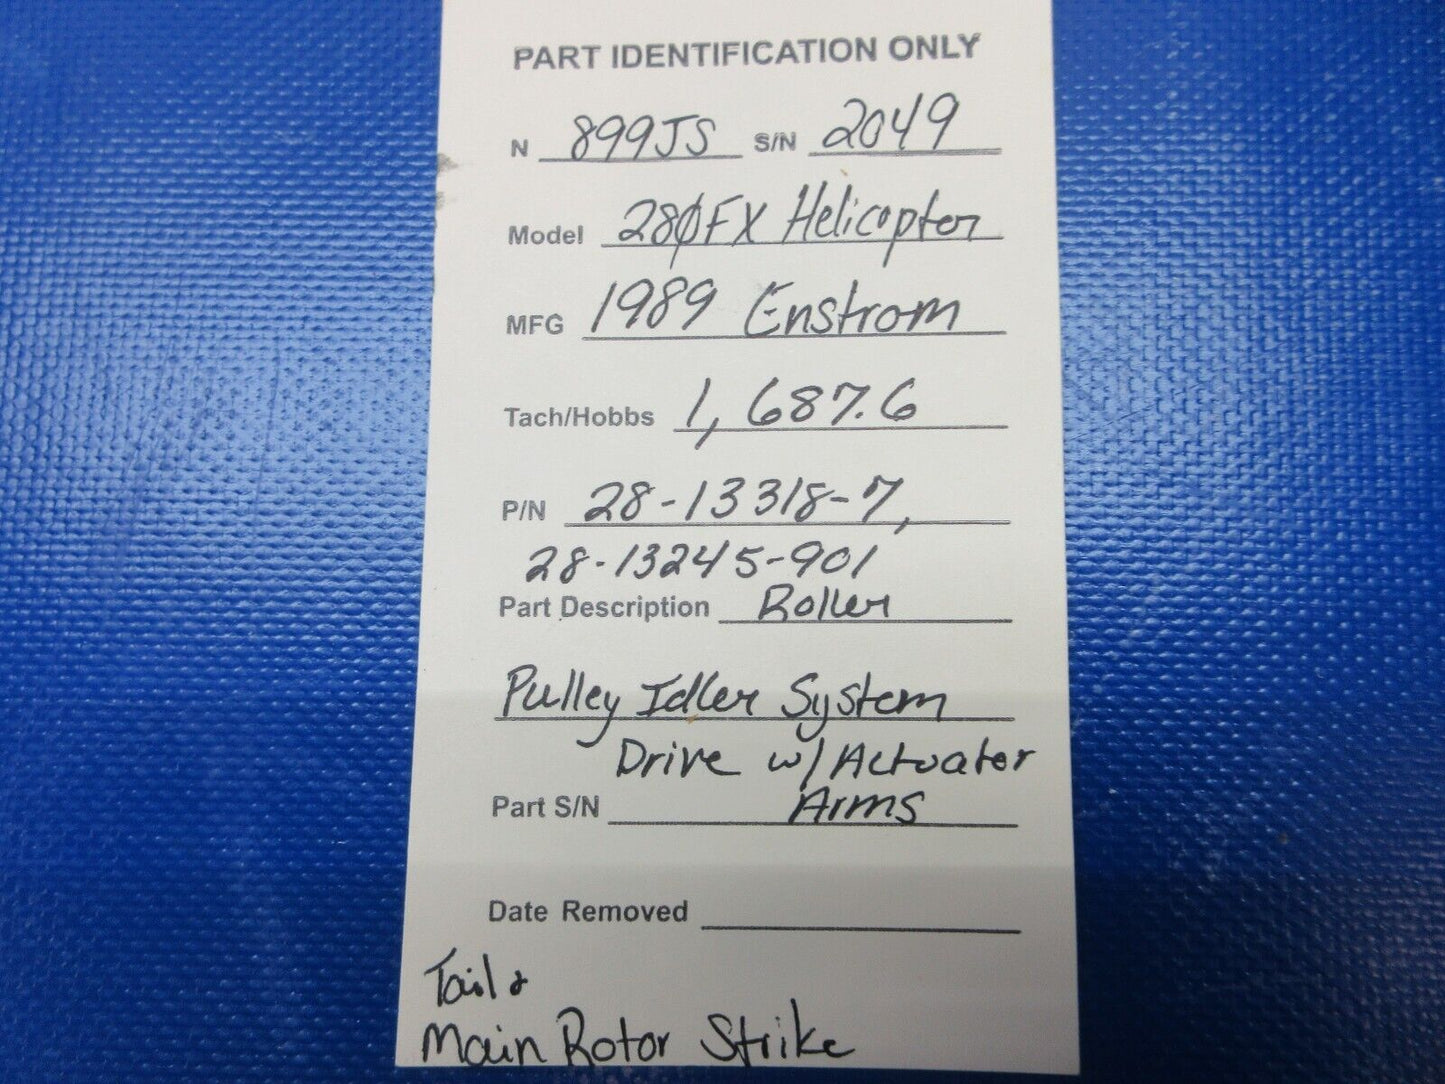 PART IDENTIFICATION ONLY
N 899JS S/N 2049
Model 28ØFX Helicopter
MFG 1989 Enstrom
Tach/Hobbs 1,687.6
P/N 28-13318-7,
28-13245-901
Part Description Roller
Pulley Idler System
Drive w/ Actuator
Part S/N Arms
Date Removed
Tail &
Main Rotor Strike